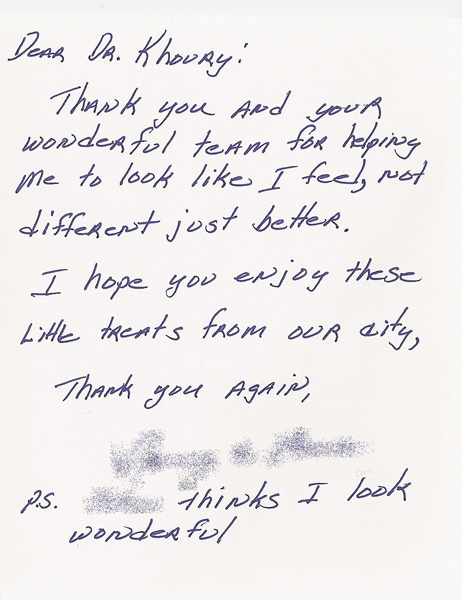 Dear Dr. Khoury:
Thank you and your
wonderful team for helping
me to look like I feel, not
different just better.
I hope you enjoy these
little treats from our city,
Thank you again,
P.S. thinks I look
wonderful